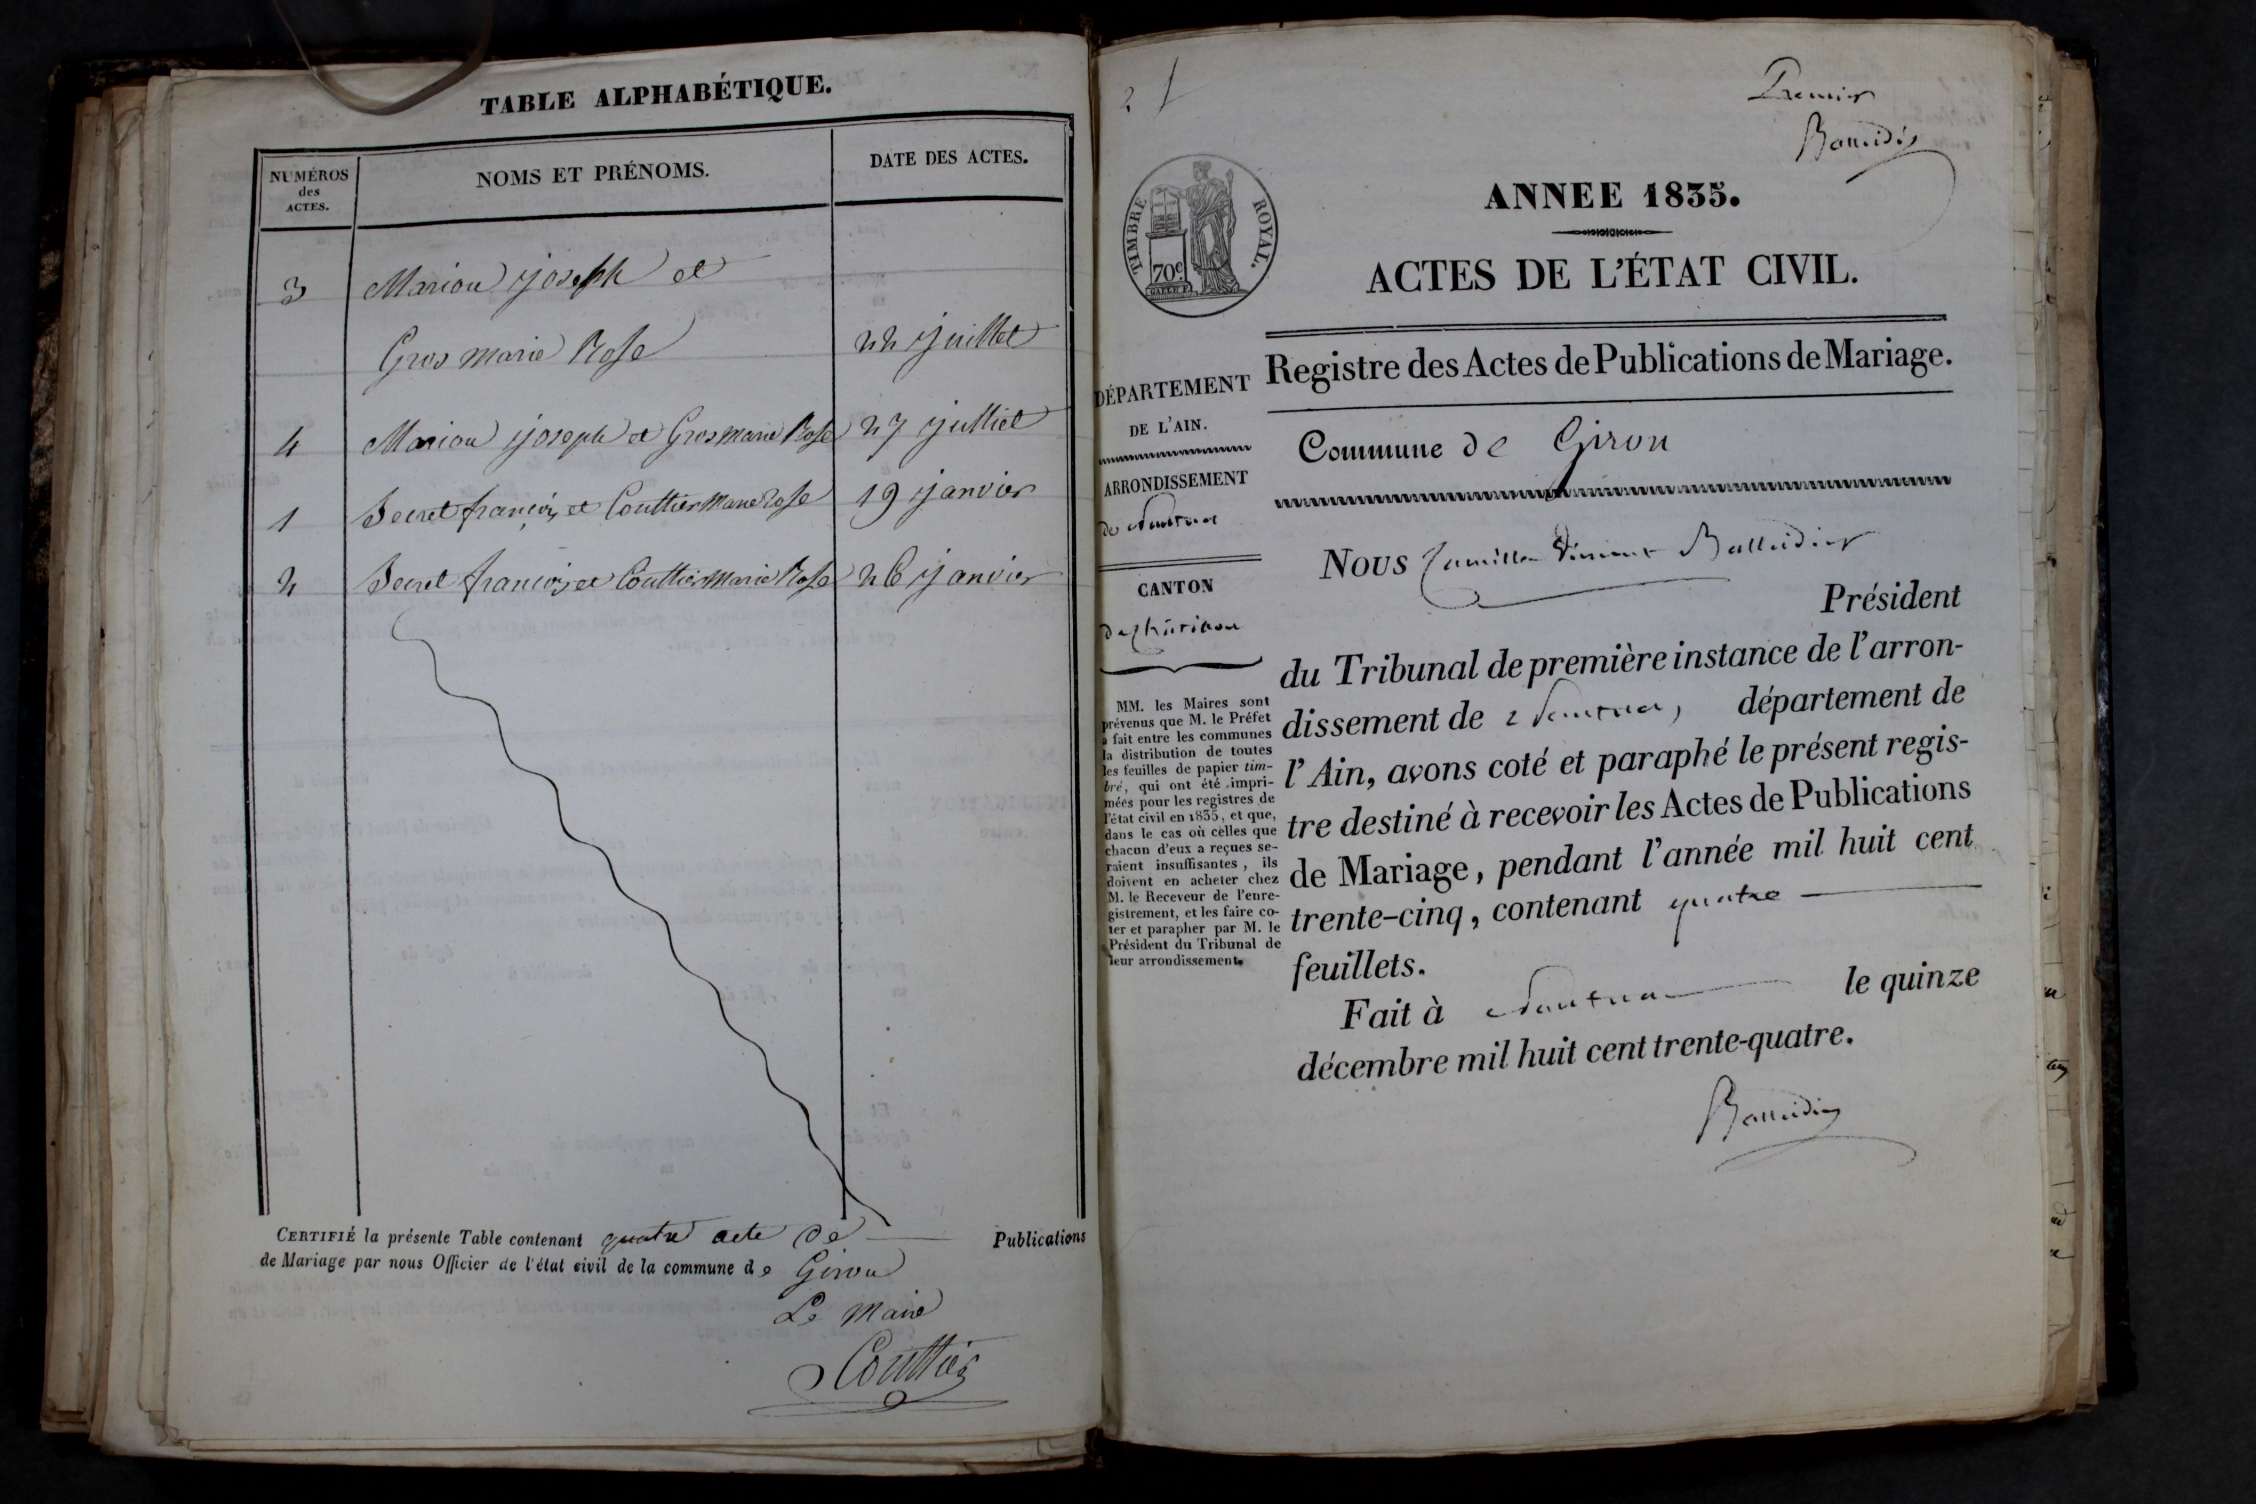 TABLE ALPHABÉTIQUE.
NUMÉROS
des
ACTES.
NOMS ET PRÉNOMS.
DATE DES ACTES.
3 Mariou joseph et
Gros marie Rose 22 juillet
4 Mariou joseph et Gros marie Rose 27 julliet
1 Secret françois et Couttier Marie Rose 19 janvier
2 Secret françois et Couttier Marie Rose 26 janvier
CERTIFIÉ la présente Table contenant quatre acte de Publications
de Mariage par nous Officier de l'état civil de la commune de Giron
Le Maire
Couttier
Premier
ANNEE 1835.
TIMBRE ROYAL.
70c
ACTES DE L'ÉTAT CIVIL.
Registre des Actes de Publications de Mariage.
DÉPARTEMENT
DE L'AIN.
ARRONDISSEMENT
de Nantua
CANTON
de Châtillon
MM. les Maires sont
prévenus que M. le Préfet
a fait entre les communes
la distribution de toutes
les feuilles de papier tim-
bré, qui ont été impri-
mées pour les registres de
l'état civil en 1835, et que,
dans le cas où celles que
chacun d'eux a reçues se-
raient insuffisantes, ils
doivent en acheter chez
M. le Receveur de l'enre-
gistrement, et les faire co-
ter et parapher par M. le
Président du Tribunal de
leur arrondissement.
Commune de Giron
Nous Camille Vincent
Président
du Tribunal de première instance de l'arron-
dissement de Nantua, département de
l'Ain, avons coté et paraphé le présent regis-
tre destiné à recevoir les Actes de Publications
de Mariage, pendant l'année mil huit cent
trente-cinq, contenant quatre
feuillets.
Fait à Nantua le quinze
décembre mil huit cent trente-quatre.